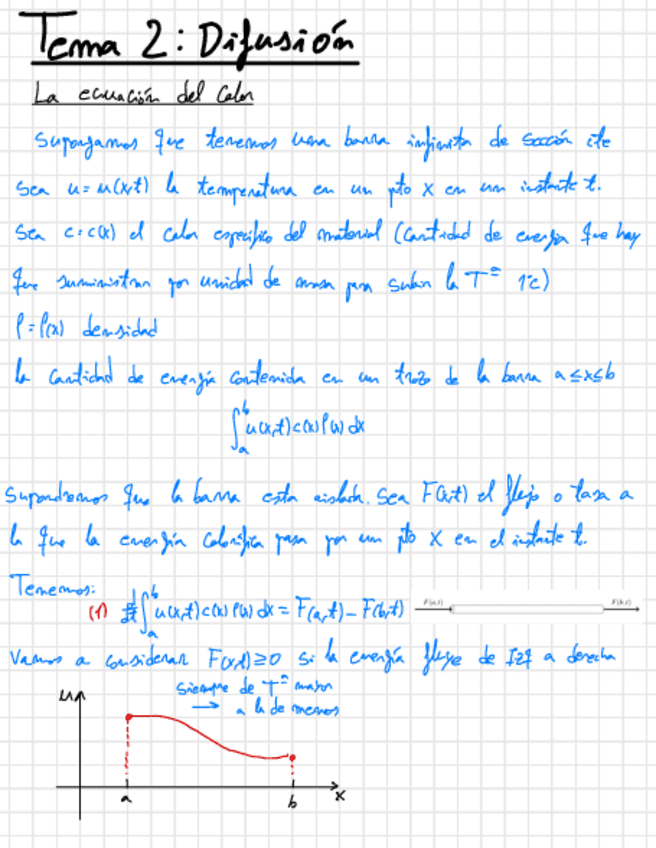 Tema 2: Difusión
La ecuación del Calor
Supongamos que tenemos una barra infinita de sección cte
Sea u = u(x,t) la temperatura en un pto x en un instante t.
Sea c = c(x) el calor específico del material (Cantidad de energía que hay
que suministrar por unidad de masa para subir la Tª 1ºC)
ρ = ρ(x) densidad
la Cantidad de energía contenida en un trozo de la barra a ≤ x ≤ b
∫_a^b u(x,t) c(x) ρ(x) dx
Supondremos que la barra esta aislada. Sea F(x,t) el flujo o tasa a
la que la energía Calorífica pasa por un pto x en el instante t.
Tenemos:
(1) d/dt ∫_a^b u(x,t) c(x) ρ(x) dx = F(a,t) - F(b,t)
F(a,t) F(b,t)
Vamos a considerar F(x,t) ≥ 0 si la energía fluye de Izq a derecha
siempre de Tª mayor
→ a la de menos
u
a b x